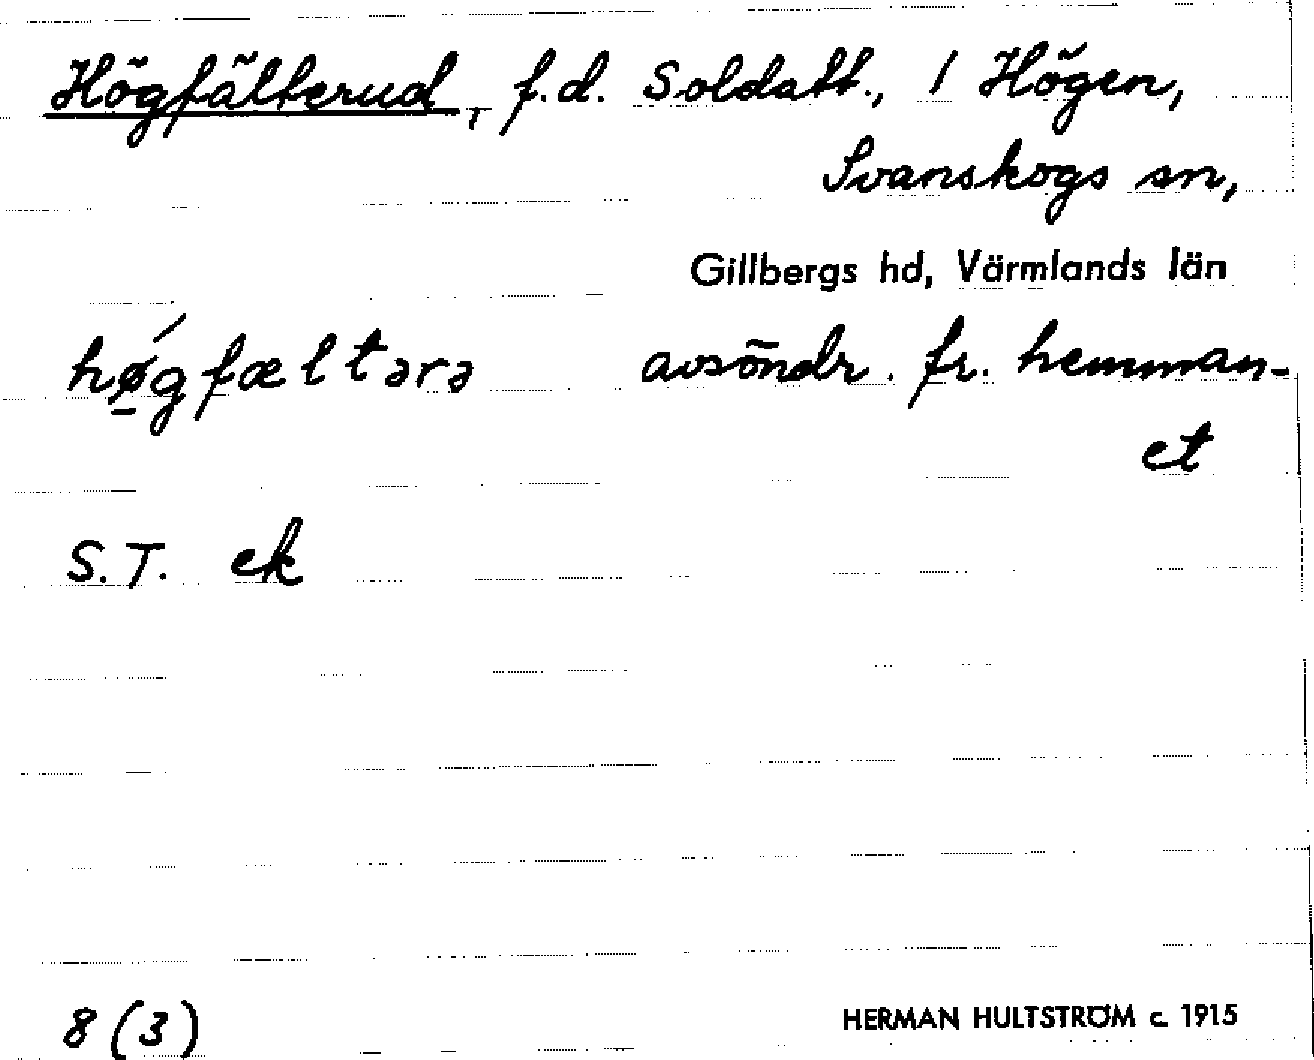 Högfälterud, f.d. Soldatt., 1 Högen,
Svanskogs sn,
Gillbergs hd, Värmlands län
hǿ̲gfæltərə avsöndr. fr. hemman-
et
S.T. ek
8 (3) HERMAN HULTSTRÖM c. 1915